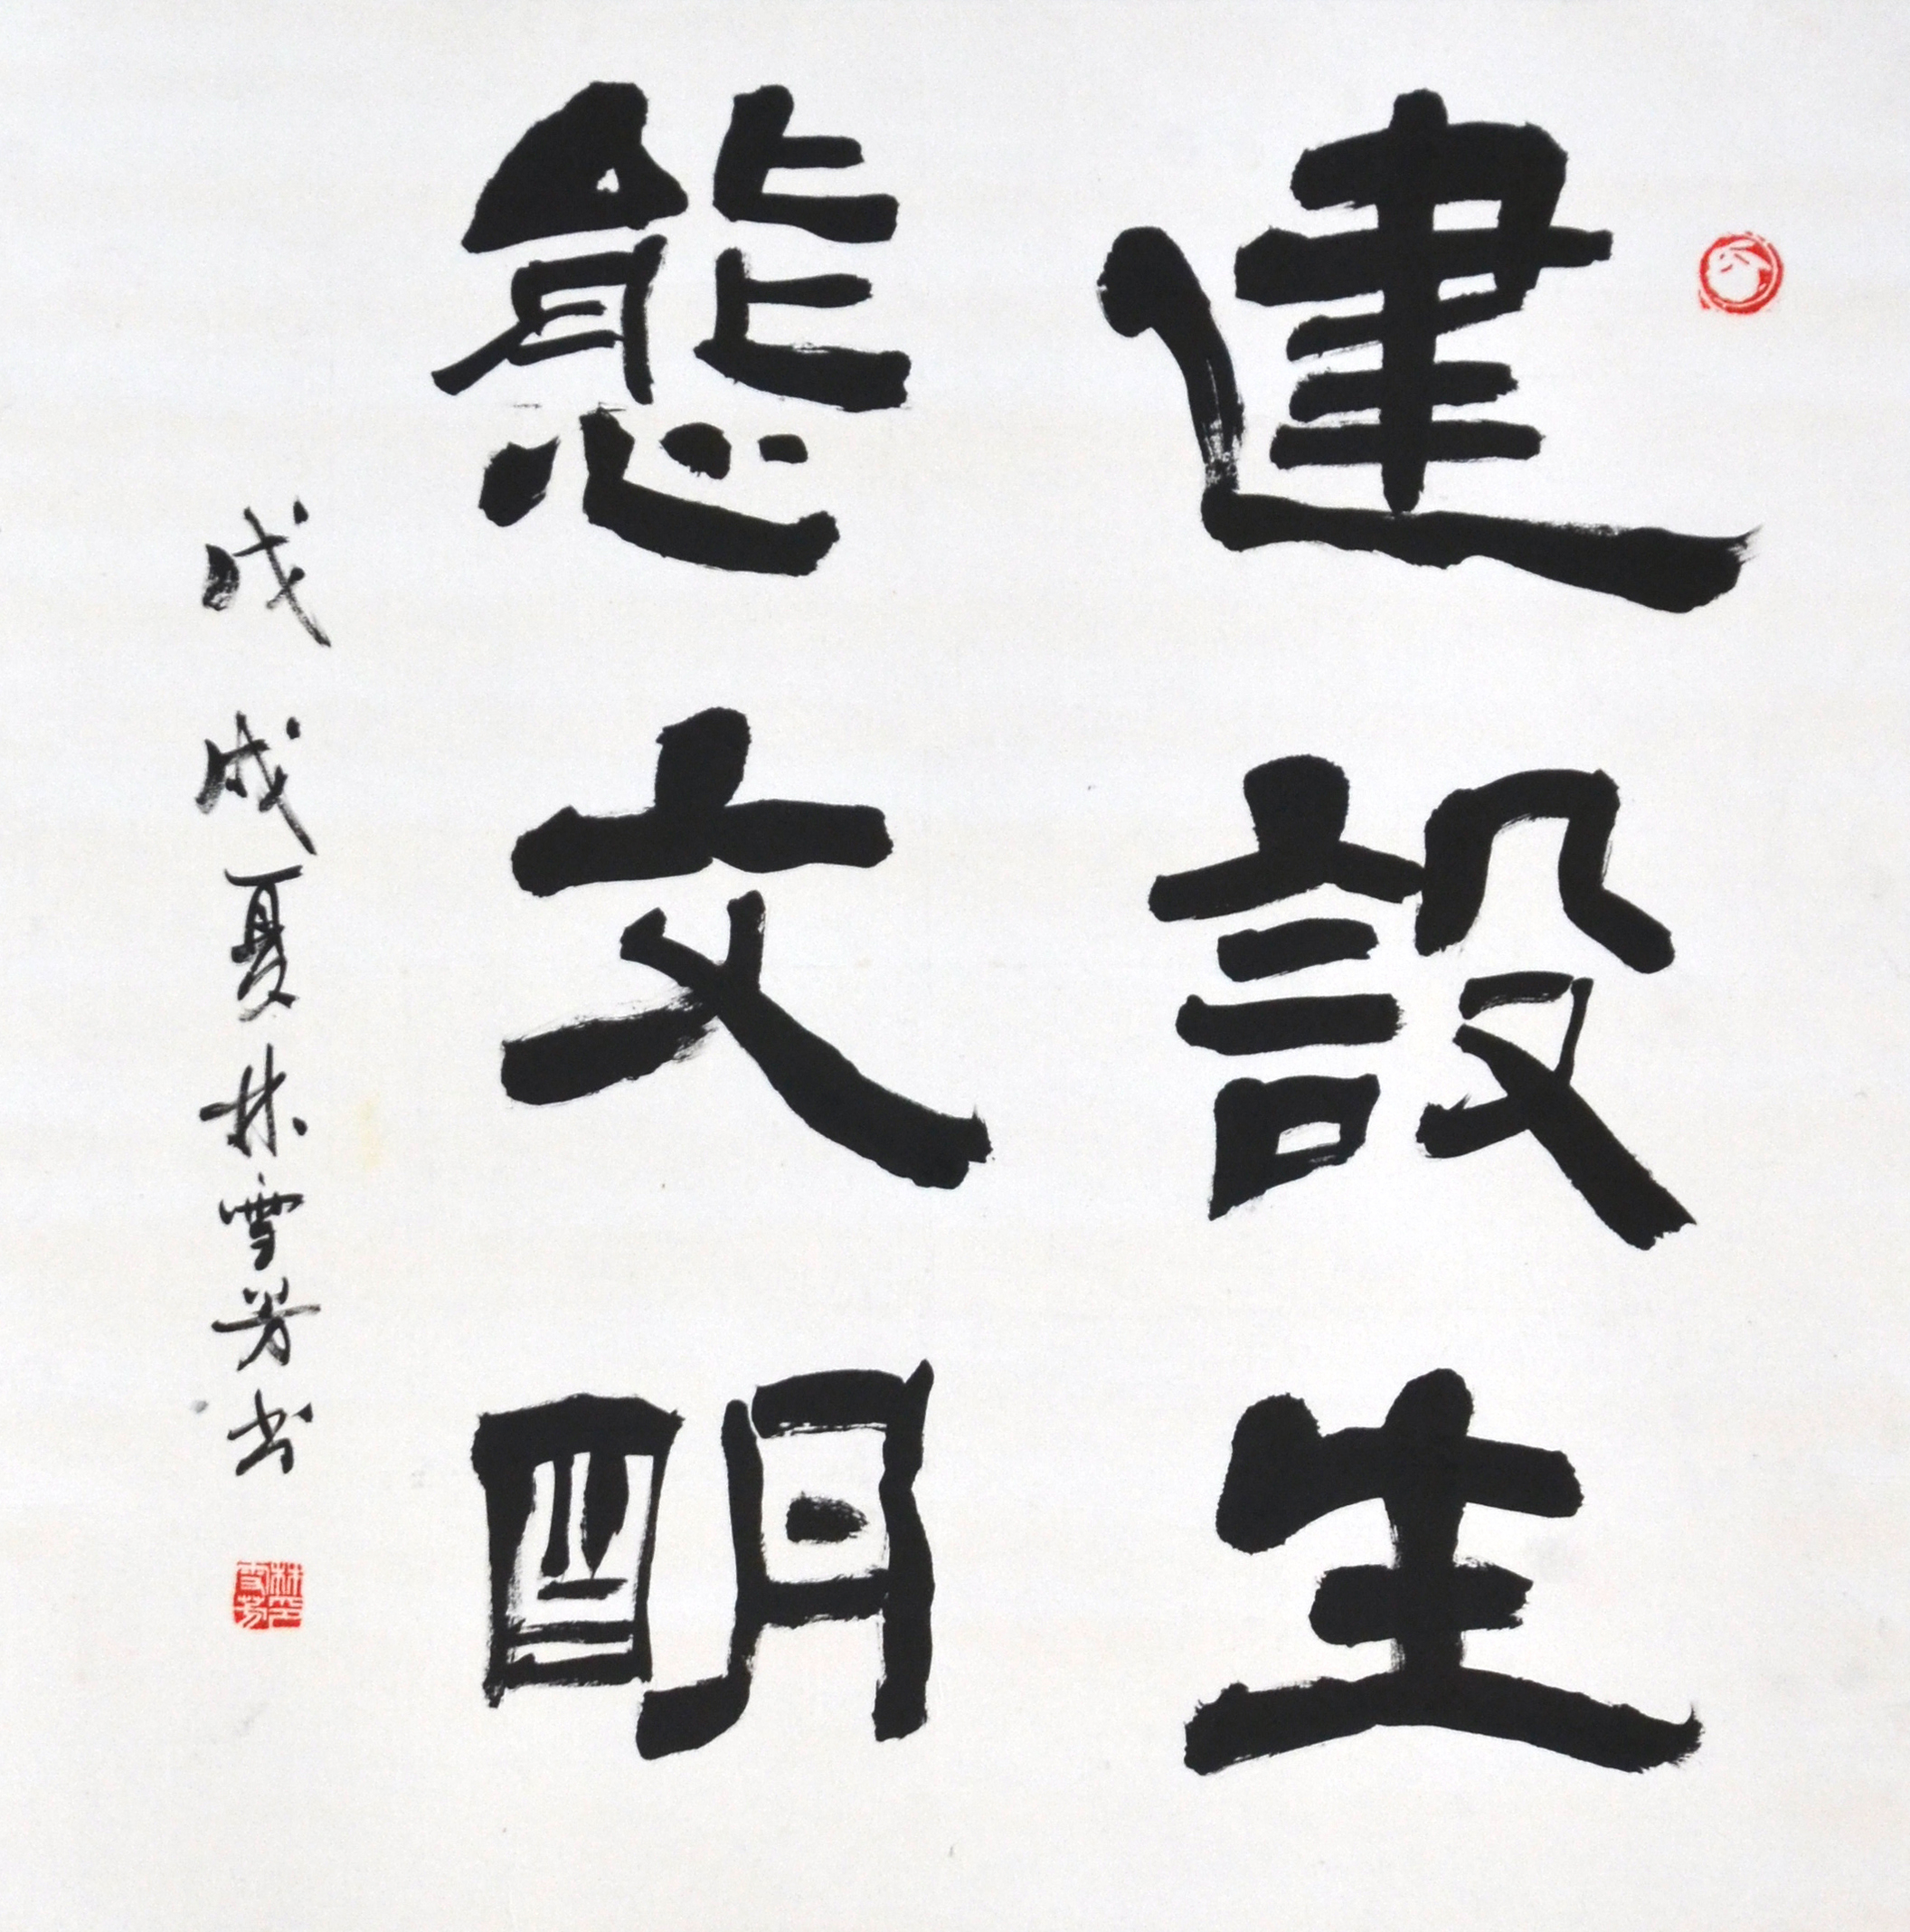 建設生
態文明
戊戌夏林雪芳书
林雪芳印